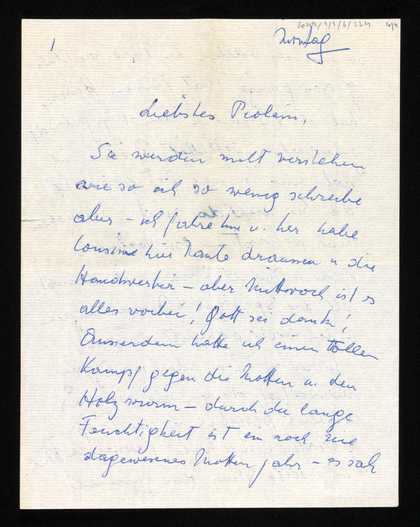 1
Montag
Liebstes Piolein,
Sie werden nicht verstehen
wieso ich so wenig schreibe
aber – ich fahre hin u. her habe
hier Leute draussen u die
Handwerker – aber Mittwoch ist es
alles vorbei! Gott sei dank!
Ausserdem hatte ich einen tollen
Kampf gegen die Motten u. den
Holzwurm – durch die lange
Feuchtigkeit ist ein noch nie
dagewesenes Motten jahr – es sah